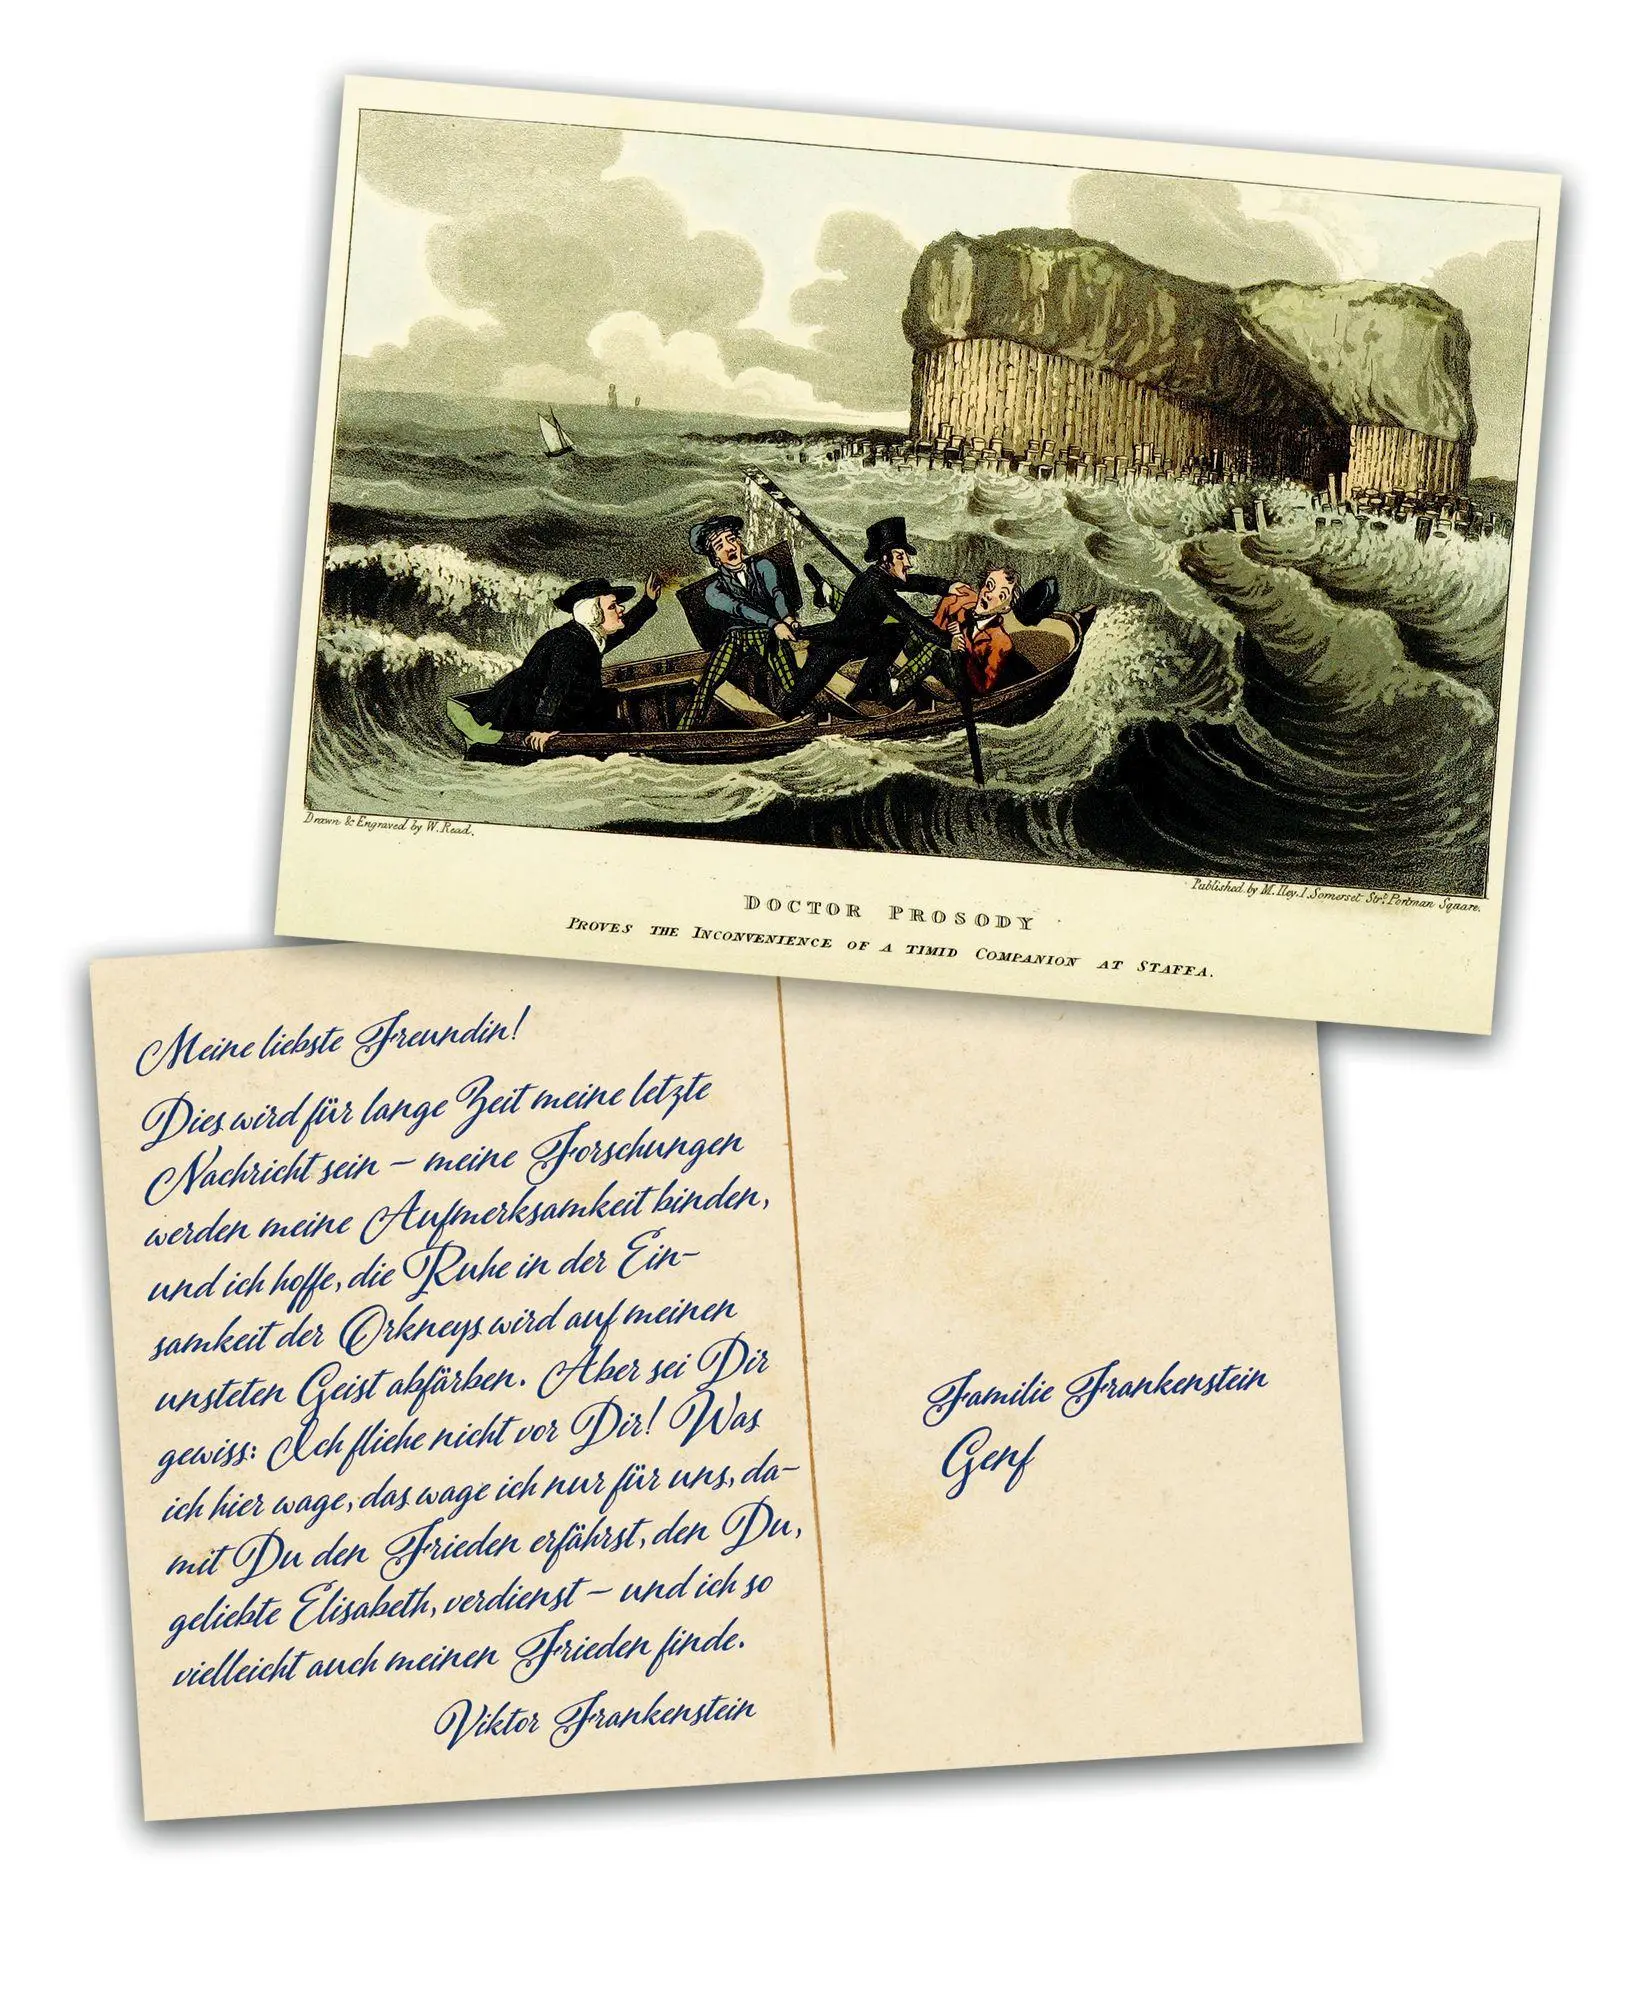 Drawn & Engraved by W. Read.
Published by M. Iley, 1, Somerset Strt. Portman Square.
DOCTOR PROSODY
PROVES THE INCONVENIENCE OF A TIMID COMPANION AT STAFFA.
Meine liebste Freundin!
Dies wird für lange Zeit meine letzte
Nachricht sein – meine Forschungen
werden meine Aufmerksamkeit binden,
und ich hoffe, die Ruhe in der Ein-
samkeit der Orkneys wird auf meinen
unsteten Geist abfärben. Aber sei Dir
gewiss: Ich fliehe nicht vor Dir! Was
ich hier wage, das wage ich nur für uns, da-
mit Du den Frieden erfährst, den Du,
geliebte Elisabeth, verdienst – und ich so
vielleicht auch meinen Frieden finde.
Viktor Frankenstein
Familie Frankenstein
Genf